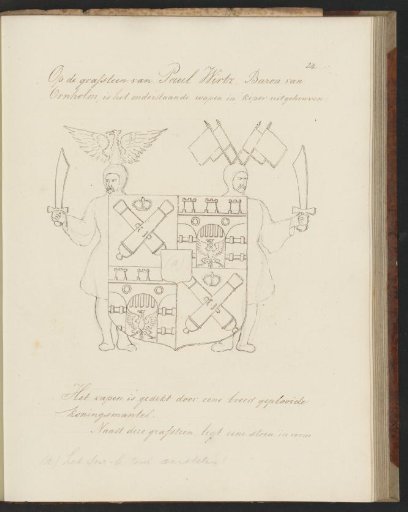 24
Op de grafsteen van Pauel Wirtz Baron van
Ornholm is het onderstaande wapen in koper uitgehouwen
(a)
Het wapen is gedekt door eene breed geplooide
Koningsmantel
Naast deze grafsteen legt eene steen in vorm
(a) het